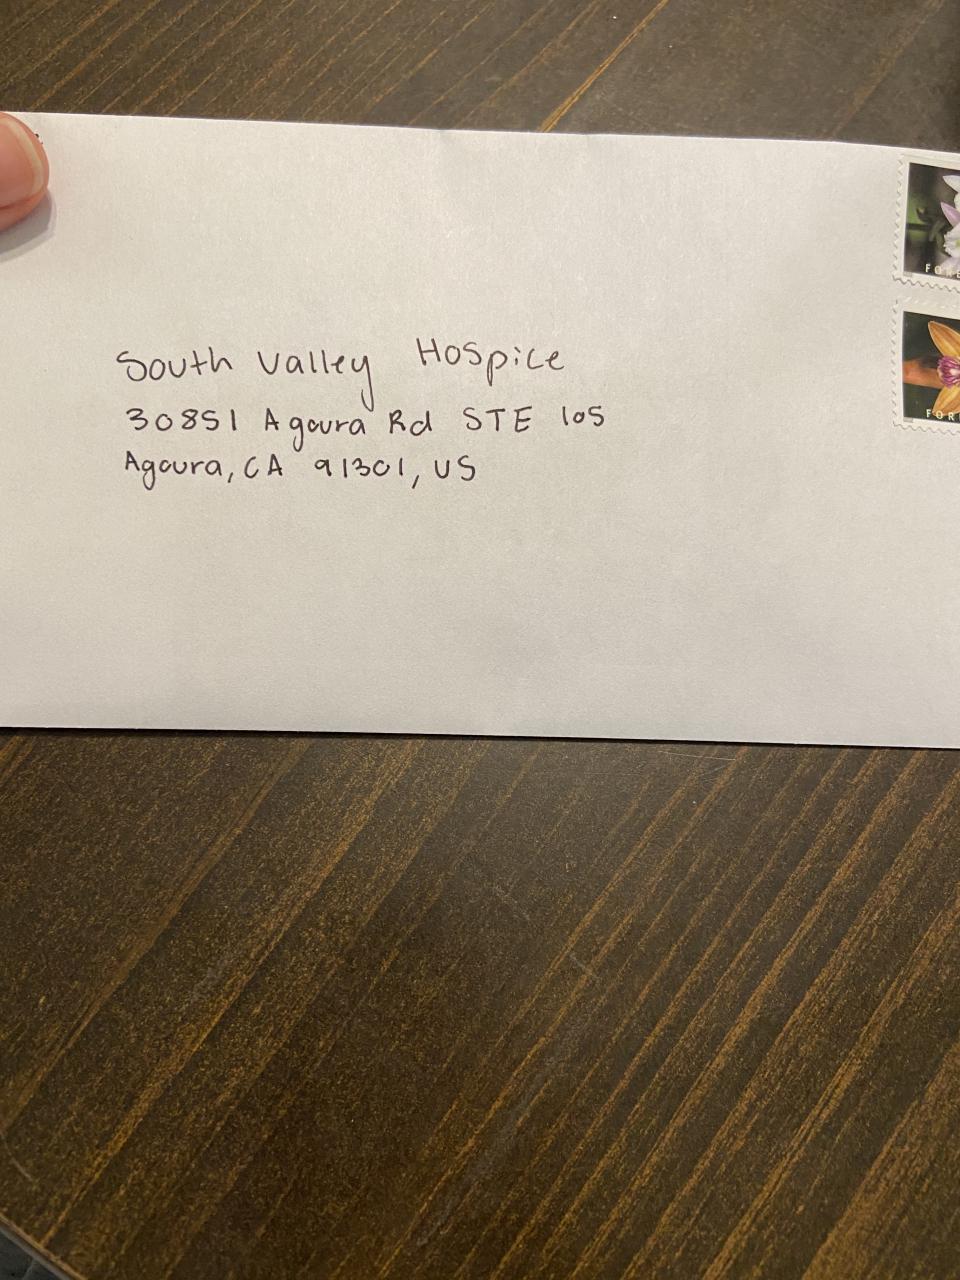 South Valley Hospice
30851 Agoura Rd STE 105
Agoura, CA 91301, US